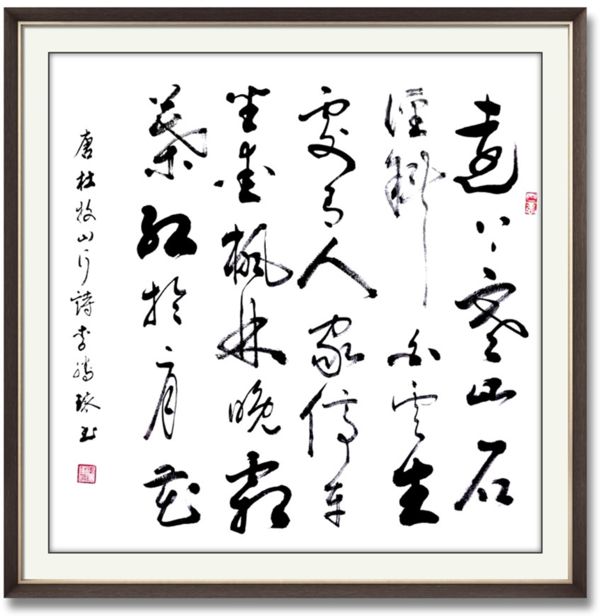 遠上寒山石
徑斜白雲生
處有人家停車
坐愛楓林晚霜
葉紅於二月花
唐杜牧山行詩李書